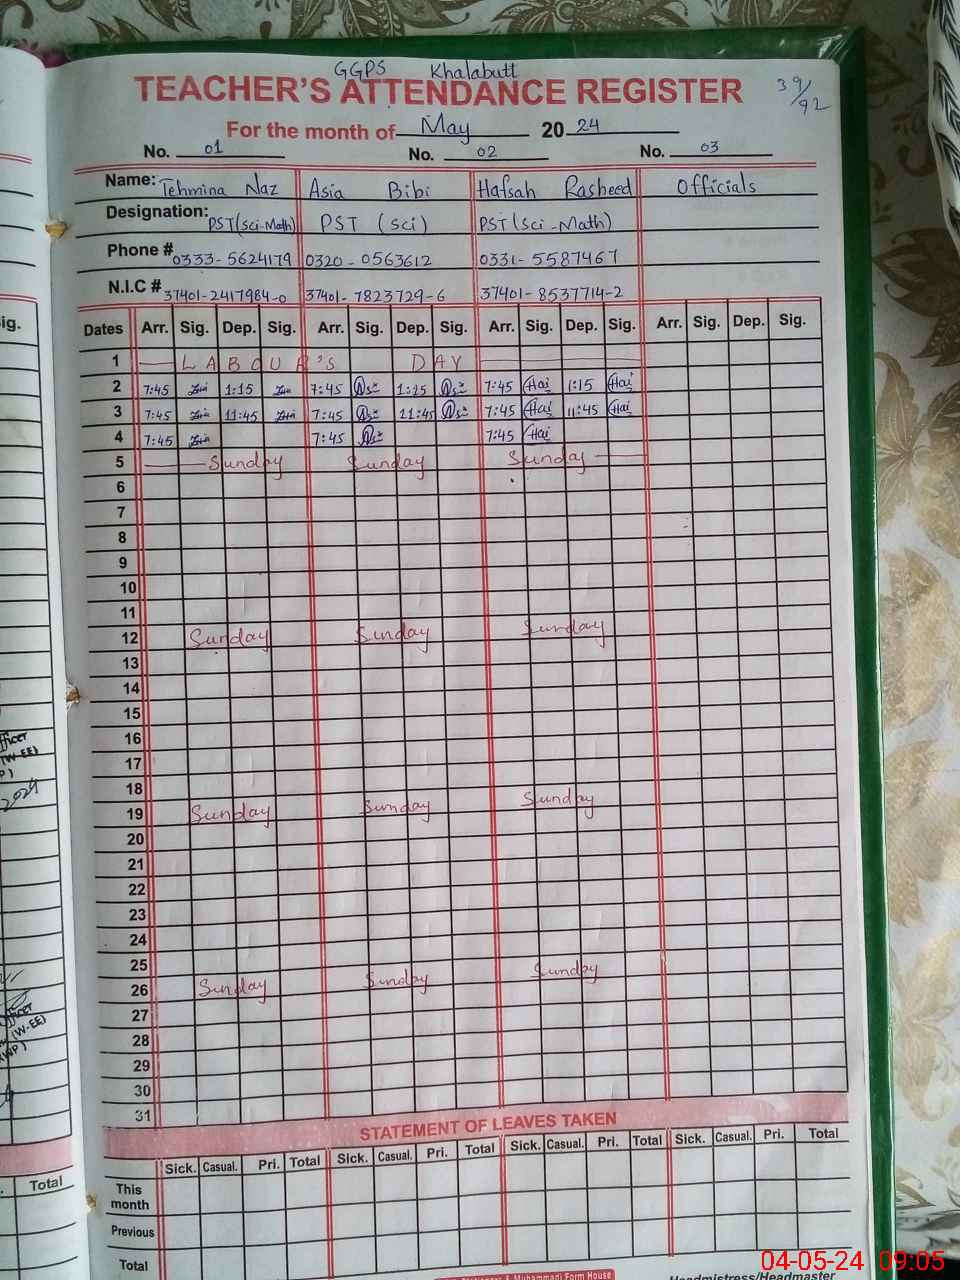 GGPS Khalabutt
TEACHER'S ATTENDANCE REGISTER
39/92
For the month of May 2024
No. 01 No. 02 No. 03
Name: Tehmina Naz Asia Bibi Hafsah Rasheed Officials
Designation: PST(Sci-Math) PST (Sci) PST(Sci-Math)
Phone # 0333-5624179 0320-0563612 0331-5587467
N.I.C # 37401-2417984-0 37401-7823729-6 37401-8537714-2
Dates Arr. Sig. Dep. Sig. Arr. Sig. Dep. Sig. Arr. Sig. Dep. Sig. Arr. Sig. Dep. Sig.
1 LABOUR'S DAY
2 7:45 1:15 7:45 1:15 7:45 Hai 1:15 Hai
3 7:45 11:45 7:45 11:45 7:45 Hai 11:45 Hai
4 7:45 7:45 7:45 Hai
5 Sunday Sunday Sunday
6
7
8
9
10
11
12 Sunday Sunday Sunday
13
14
15
16
17
18
19 Sunday Sunday Sunday
20
21
22
23
24
25
26 Sunday Sunday Sunday
27
28
29
30
31
STATEMENT OF LEAVES TAKEN
Sick. Casual. Pri. Total Sick. Casual. Pri. Total Sick. Casual. Pri. Total Sick. Casual. Pri. Total
This month
Previous
Total
& Muhammadi Form House
Headmistress/Headmaster
04-05-24 09:05
ig.
(W-EE)
2024
(W-EE)
Total